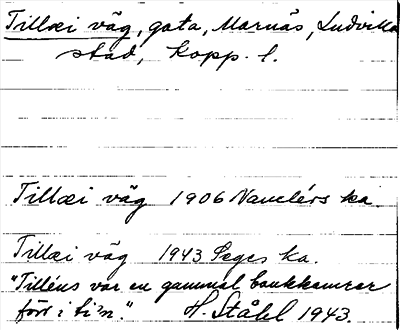 Tillæi väg, gata, Marnäs, Ludvika
stad, Kopp. l.
Tillæi väg 1906 Nauclérs ka
Tillæi väg 1943 Seges ka.
"Tilléns var en gammal bankkamrer
förr i ti'n." H. Ståhl 1943.